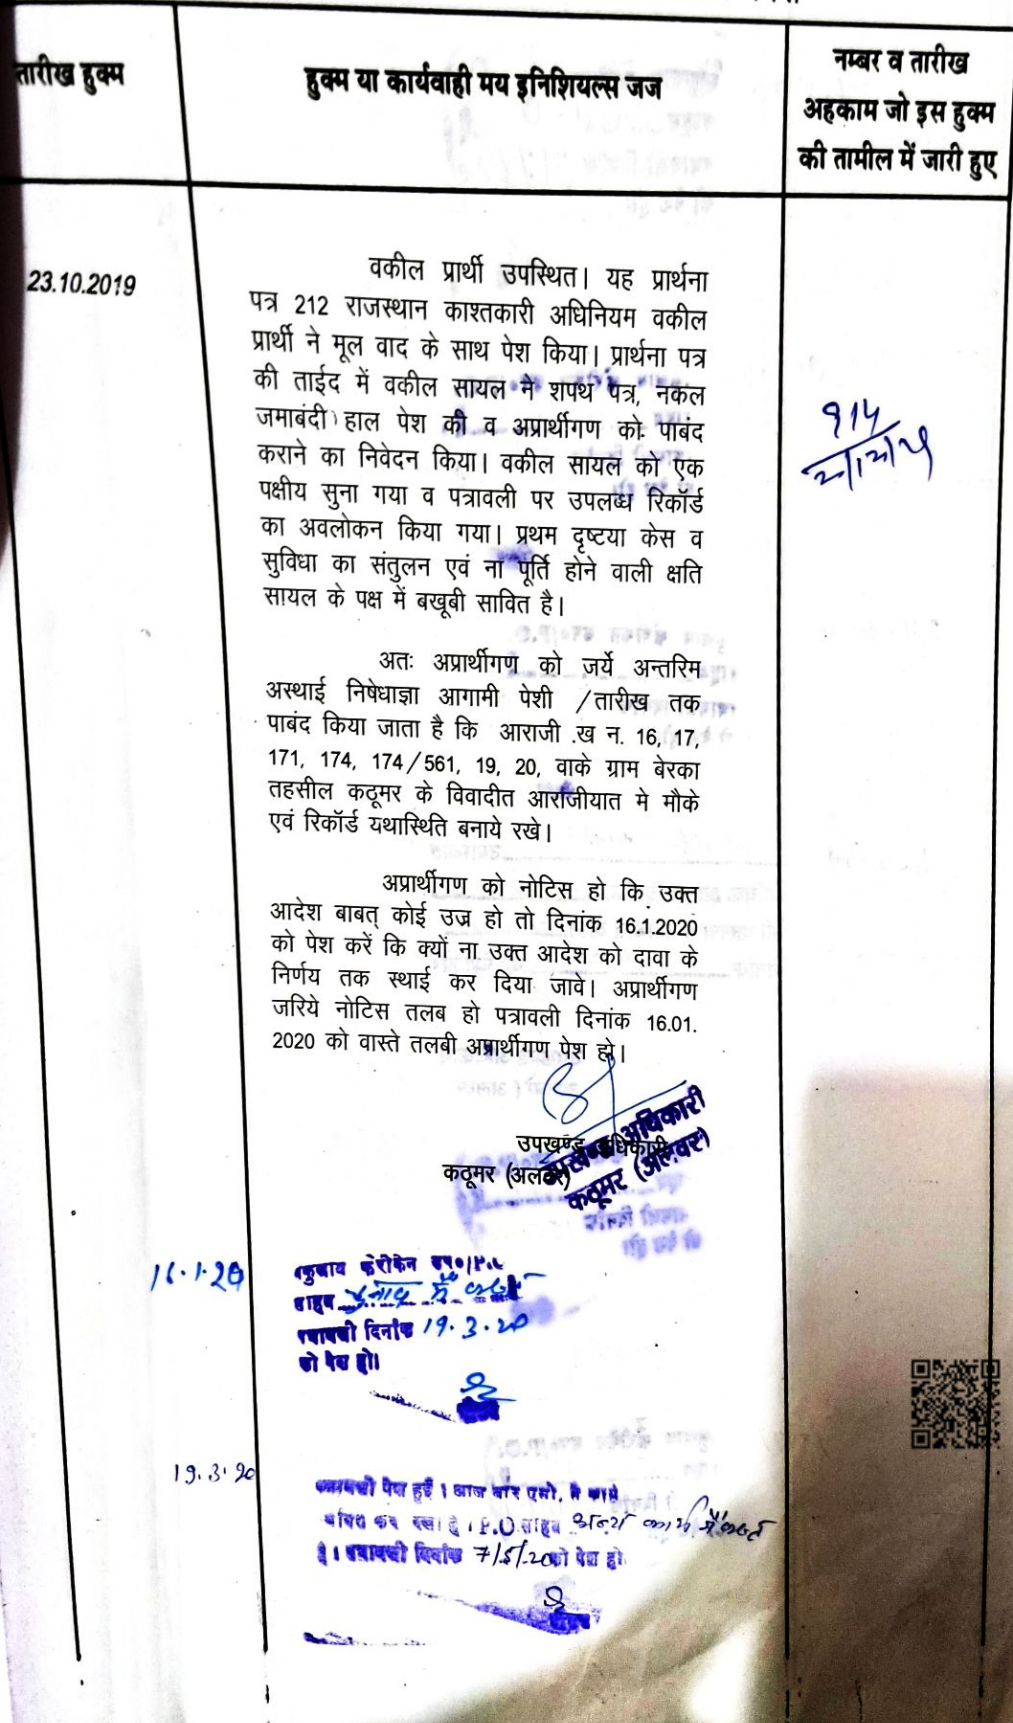 तारीख हुक्म
हुक्म या कार्यवाही मय इनिशियल्स जज
नम्बर व तारीख
अहकाम जो इस हुक्म
की तामील में जारी हुए
23.10.2019
वकील प्रार्थी उपस्थित। यह प्रार्थना
पत्र 212 राजस्थान काश्तकारी अधिनियम वकील
प्रार्थी ने मूल वाद के साथ पेश किया। प्रार्थना पत्र
की ताईद में वकील सायल ने शपथ पत्र, नकल
जमाबंदी हाल पेश की व अप्रार्थीगण को पाबंद
कराने का निवेदन किया। वकील सायल को एक
पक्षीय सुना गया व पत्रावली पर उपलब्ध रिकॉर्ड
का अवलोकन किया गया। प्रथम दृष्टया केस व
सुविधा का संतुलन एवं ना पूर्ति होने वाली क्षति
सायल के पक्ष में बखूबी सावित है।
914
अतः अप्रार्थीगण को जर्ये अन्तरिम
अस्थाई निषेधाज्ञा आगामी पेशी /तारीख तक
पाबंद किया जाता है कि आराजी .ख न. 16, 17,
171, 174, 174/561, 19, 20, वाके ग्राम बेरका
तहसील कठूमर के विवादीत आराजीयात मे मौके
एवं रिकॉर्ड यथास्थिति बनाये रखे।
अप्रार्थीगण को नोटिस हो कि उक्त
आदेश बाबत् कोई उज्र हो तो दिनांक 16.1.2020
को पेश करें कि क्यों ना उक्त आदेश को दावा के
निर्णय तक स्थाई कर दिया जावे। अप्रार्थीगण
जरिये नोटिस तलब हो पत्रावली दिनांक 16.01.
2020 को वास्ते तलबी अप्रार्थीगण पेश हो।
उपखण्ड अधिकारी
कठूमर (अलवर)
उपखण्ड अधिकारी
कठूमर (अलवर)
16.1.20
साहब चुनाव में व्यस्त
पत्रावली दिनांक 19.3.20
को पेश हो।
19.3.20
पत्रावली पेश हुई। आज बार एसो. ने कार्य
P.O. साहब अन्य कार्य में व्यस्त
है। पत्रावली दिनांक 7/5/20 को पेश हो